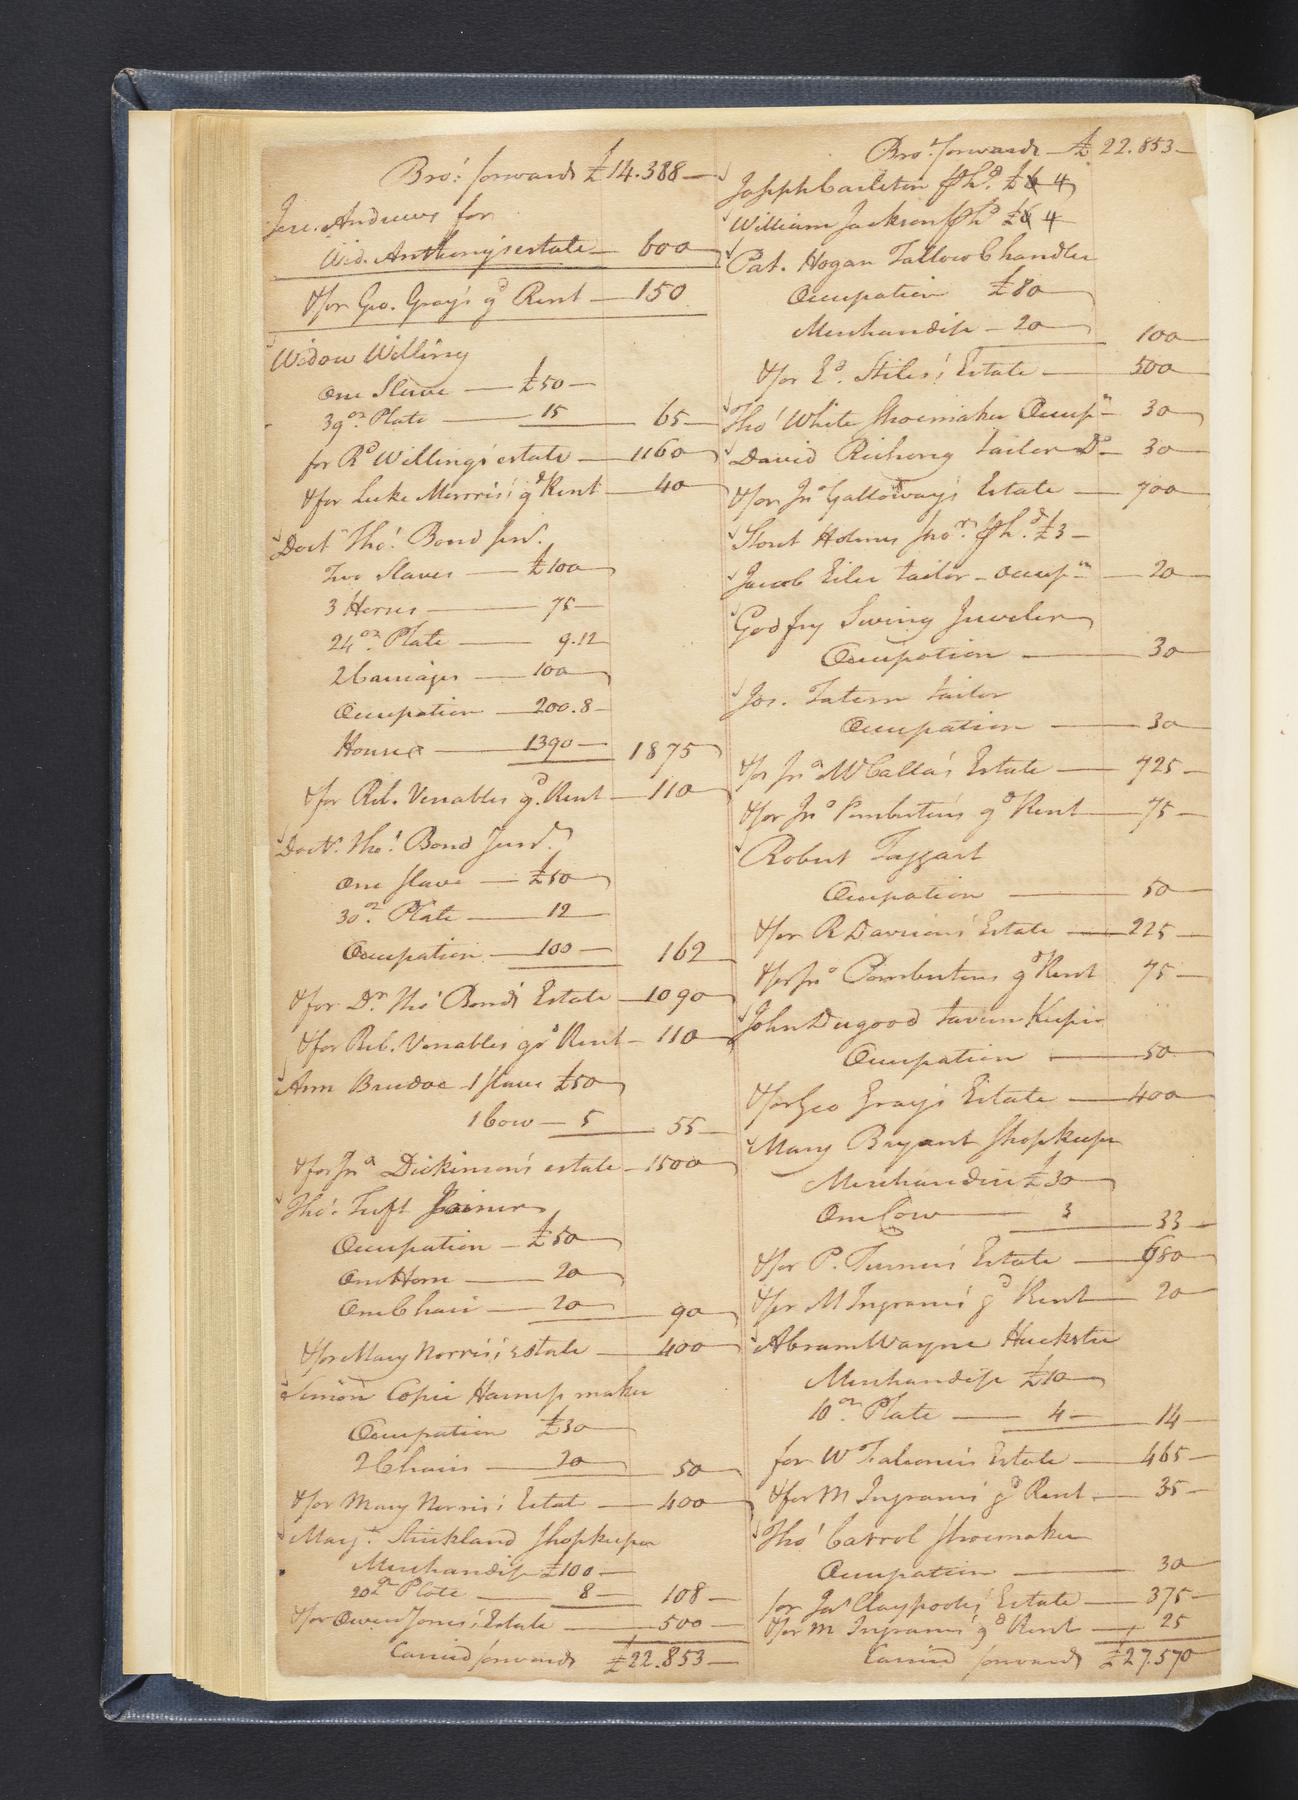 Bro.t forwards £14.388—
Jere. Andrews for
Wid. Anthony's estate — 600
&for Geo. Gray's gd Rent — 150
Widow Willing
One Slave — £50—
39 oz Plate — 15 65—
for Rd Willing's estate — 1160
&for Luke Morris's gd Rent — 40
Doct.r Tho.s Bond Senr.
Two Slaves — £100
3 Horses — 75—
24 oz. Plate — 9.12
2 Carriages — 100
Occupation — 200.8—
Houses — 1390— 1875
&for Reb. Venables gd. Rent — 110
Doctr. Tho.s Bond Junr.
One slave — £50
30 oz. Plate — 12
Occupation — 100— 162
&for Dr. Tho.s Bond's Estate — 1090
&for Reb. Venables gd Rent — 110
Ann Bredoe 1 slave £50
1 Cow — 5 55—
&for Jno Dickinson's estate — 1500
Tho.s Tuft Joiner
Occupation — £50
One Horse — 20
One Chair — 20 90
&for Mary Norris's estate — 400
Simon Copie Harness maker
Occupation £30
2 Chairs — 20 50
&for Mary Norris's Estate — 400
Mary Strickland Shopkeeper
Merchandise £100—
20 oz Plate — 8— 108—
&for Owen Jones's Estate — 500—
Carried forwards £22.853—
Bro.t forwards — £22.853—
Joseph Carleton £4
William Jackson £4
Pat. Hogan Tallow Chandler
Occupation £80
Merchandise — 20 100—
&for Ed. Stiles's Estate — 500—
Tho.s White Shoemaker Occupn — 30
David Tailor Do — 30
&for Jno Galloway's Estate — 700
Holmes £3—
Jacob Eiler tailor — occupn — 20
Godfry Swing Jeweler
Occupation — 30
Jos. Tatem tailor
Occupation — 30
&for Jno McCalla's Estate — 725—
&for Jno Pemberton's gd Rent — 75—
Robert Taggart
Occupation — 50
&for R Davison's Estate — 225—
&for Jno Pemberton's gd Rent 75—
John Dugood tavern Keeper
Occupation — 50
&for Geo Gray's Estate — 400
Mary Bryant Shopkeeper
Merchandise £30
One Cow — 3 33—
&for P. Turner's Estate — 680
&for M Ingram's gd Rent — 20
Abram Wayne Huckster
Merchandise £10
10 oz. Plate — 4— 14—
for W Falconer's Estate — 465—
&for M Ingram's gd Rent — 35—
Tho.s Carrol Shoemaker
Occupation — 30
for Jas Claypoole's Estate — 375—
&for M Ingram's gd Rent — 25
Carried forwards £27.570